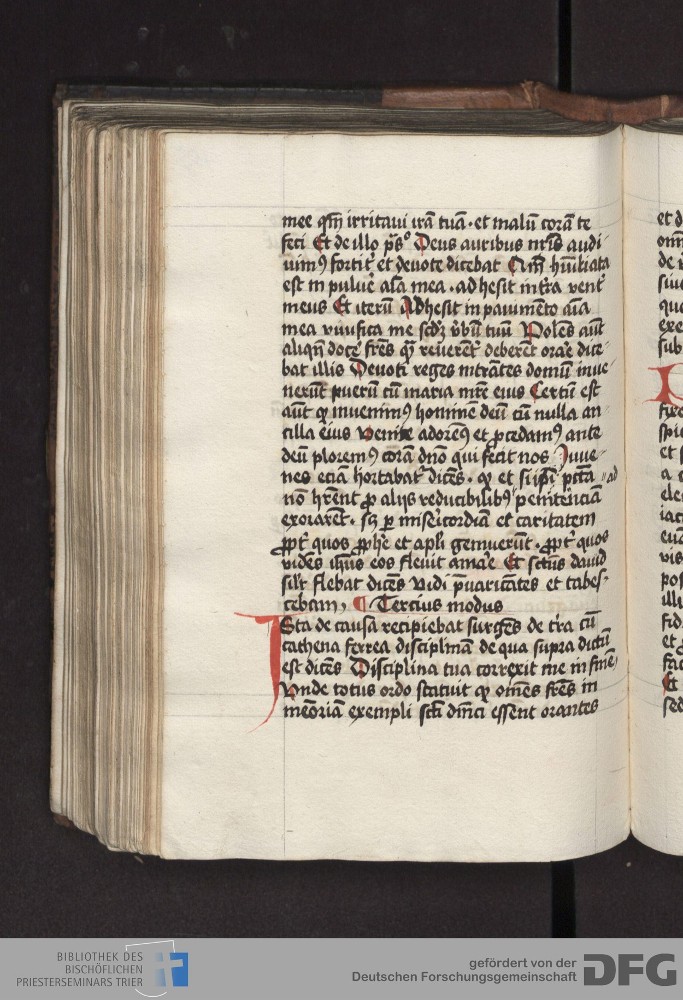 mee qm̄ irritaui irā tuā · et malū corā te
feci Et de illo ps̄º Deus auribus nr̄is audi
uimꝰ fortit᷑ et deuote dicebat Qm̄ hūiliata
est in puluē aīa mea · adhesit in tr̄a vent᷑
meus Et iterū Adhesit in pauimēto aīa
mea viuifica me scd̄z v̄bū tuū Volēs aūt
aliqn̄ docē frēs qꝫ reuerēt᷑ deberēt orāe dice
bat illis Deuoti reges intrātes domū inue
nerūt puerū cū maria mr̄e eius Certū est
aūt ꝙ inuenimꝰ hominē deū cū nulla an
cilla eius venite adoremꝰ et ꝓcedamꝰ ante
deū ploremꝰ corā dn̄o qui fecit nos Juue
nes eciā hortabat᷑ dicēs · ꝙ et si ip̄i pct̄a ad
nō hr̄ent ꝓ alijs reducibilibꝰ penitenciā
exorarēt · sꝫ ꝑ misericordiā et caritatem
ꝓpt᷑ quos ꝓphē et apl̄i gemuerūt · ꝓpt᷑ quos
videns ih̄us eos fleuit amāe Et sct̄us dauid
sil̄r flebat dicēs Vidi p̄uaricātes et tabes
cebam · ¶ Tercius modus
Ista de causā recipiebat surgēs de tr̄a cū
cathena ferrea disciplinā de qua supra dictū
est dicēs Disciplina tua correxit me in finē
Vnde totus ordo statuit ꝙ omēs frēs in
memoriā exempli sct̄i dm̄ci essent orantes
et d
de
siue
que
exe
sub
spi
et s
a
ele
iac
eua
vis
pos
illi
fid
et
fac
Et
sed
BIBLIOTHEK DES
BISCHÖFLICHEN
PRIESTERSEMINARS TRIER
gefördert von der
Deutschen Forschungsgemeinschaft DFG